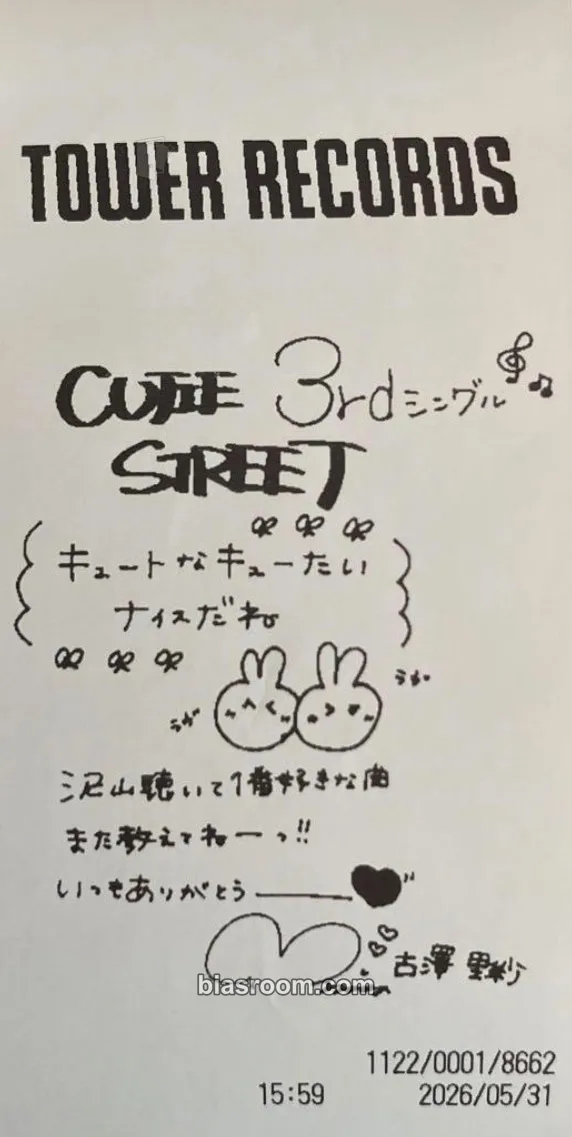 TOWER RECORDS
CUTIE 3rdシングル
STREET
キュートなキューたい
ナイスだね
うさ
うさ
沢山聴いて1番好きな曲
また教えてねーっ!!
いつもありがとう
古澤 里紗
biasroom.com
1122/0001/8662
15:59 2026/05/31